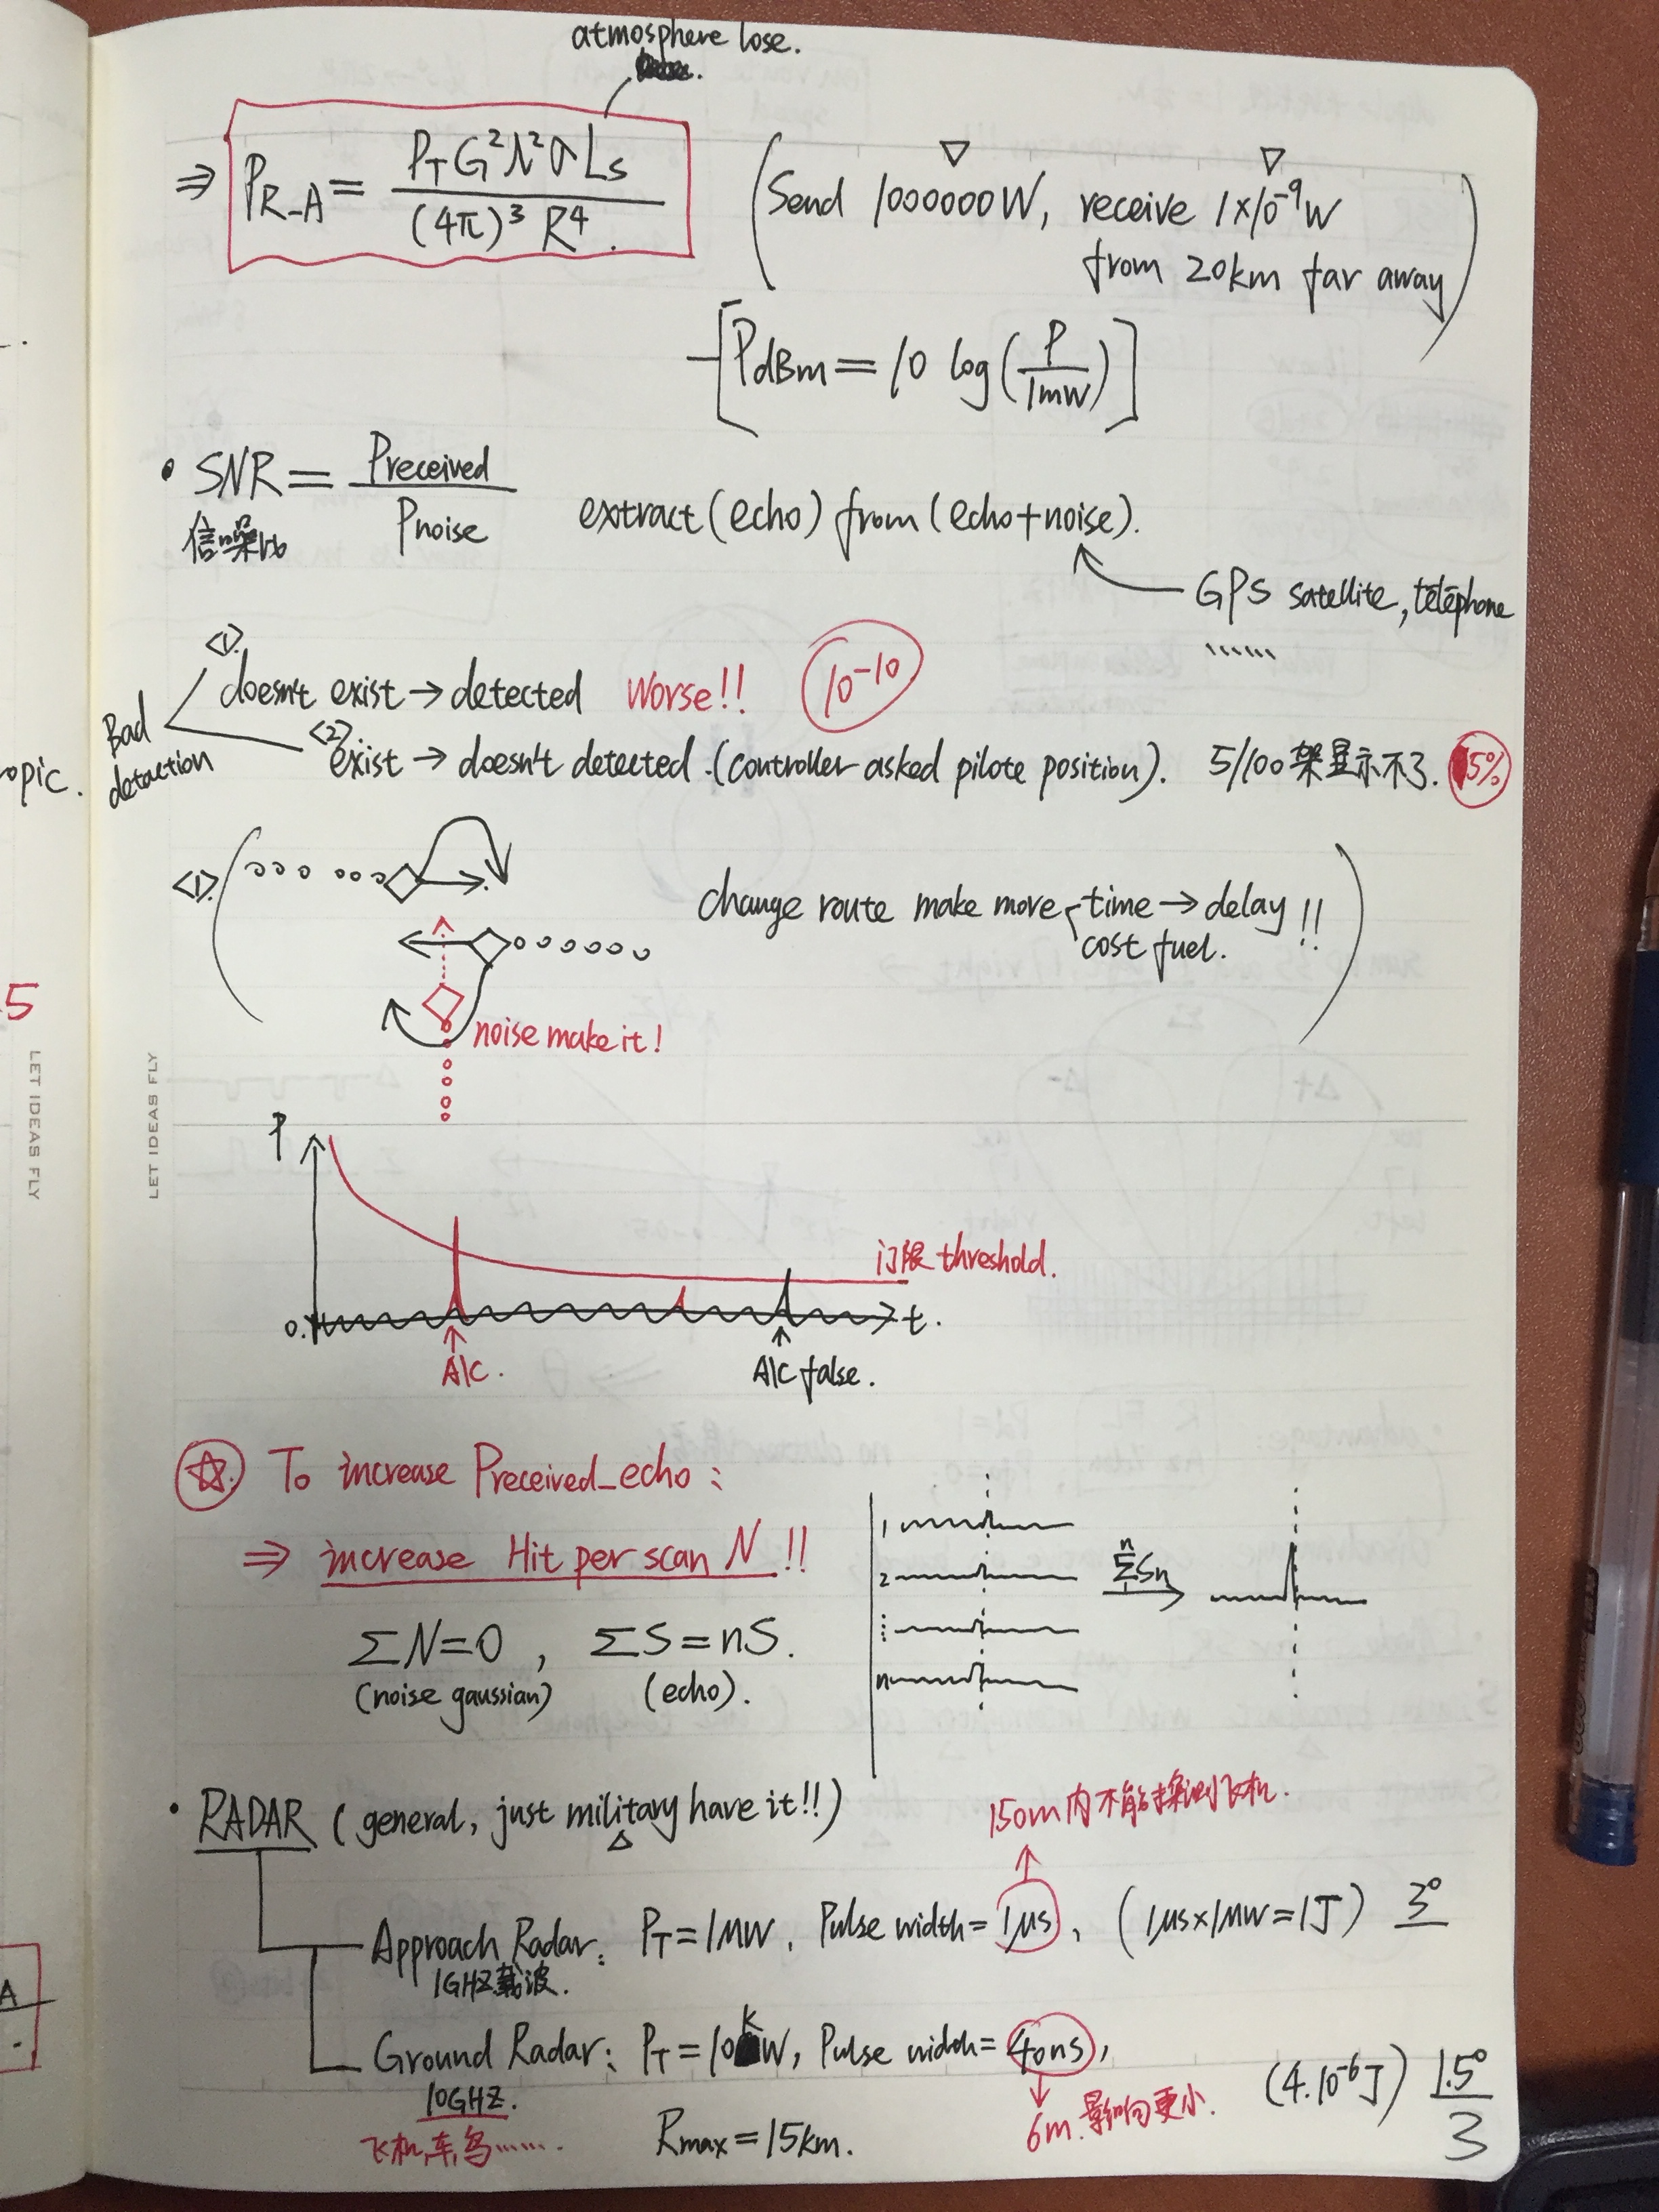 atmosphere lose.
⇒ P_R_A = P_T G² λ² σ L_S / (4π)³ R⁴.
(Send 1000000W, receive 1×10⁻⁹W
from 20km far away)
[P_dBm = 10 log(P/1mW)]
• SNR = Preceived / Pnoise
信噪比
extract (echo) from (echo+noise).
GPS satellite, téléphone
......
Bad detection
<1>. doesn't exist → detected Worse!! 10⁻¹⁰
<2>. exist → doesn't detected. (controller asked pilote position). 5/100架显示不了. 5%
opic.
<1>.
change route make more time → delay !!
cost fuel.
5
noise make it!
LET IDEAS FLY
LET IDEAS FLY
P
门限 threshold.
0. t.
A/C. A/C false.
☆. To increase Preceived_echo:
⇒ increase Hit per scan N!!
1
2
⋮
n
n Σ 1 Sn
ΣN=0, ΣS=nS.
(noise gaussian) (echo).
• RADAR (general, just military have it!!)
150m内不能探测飞机.
Approach Radar: P_T=1MW, Pulse width=1μs, (1μs×1MW=1J) 3°
1GHZ载波.
A
Ground Radar: P_T=10kW, Pulse width=40ns, (4.10⁻⁶J) 1.5°
10GHZ.
6m.影响更小.
飞机,车,鸟......
Rmax=15km.
3